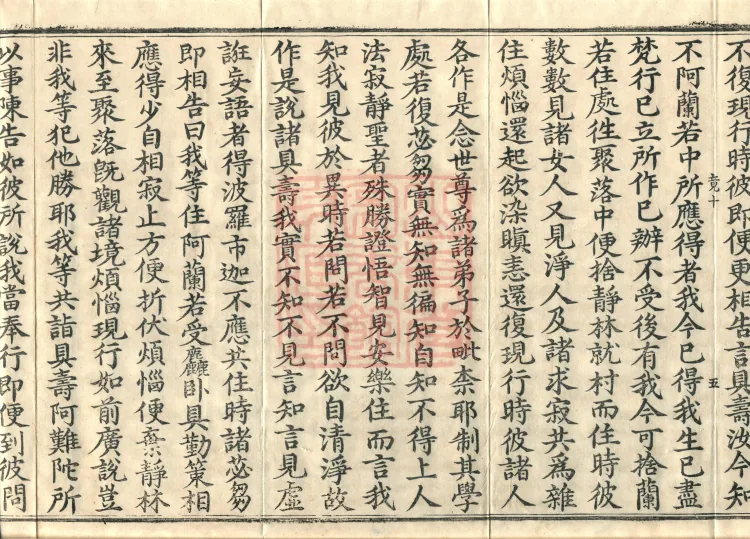 不復現行時彼即便更相告言具壽汝今知
不阿蘭若中所應得者我今已得我生已盡
竟十
五
梵行已立所作已辦不受後有我今可捨蘭
若住處往聚落中便捨静林就村而住時彼
數數見諸女人又見淨人及諸求寂共為雜
住煩惱還起欲染瞋恚還復現行時彼諸人
各作是念世尊爲諸弟子於毗柰耶制其學
處若復苾芻實無知無徧知自知不得上人
法寂靜聖者殊勝證悟智見安樂住而言我
知我見彼於異時若問若不問欲自清淨故
作是說諸具壽我實不知不見言知言見虛
誑妄語者得波羅市迦不應共住時諸苾芻
即相告曰我等住阿蘭若受麤臥具勤策相
應得少自相寂止方便折伏煩惱便棄靜林
來至聚落旣觀諸境煩惱現行如前廣說豈
非我等犯他勝耶我等共詣具壽阿難陀所
以事陳告如彼所說我當奉行即便到彼問